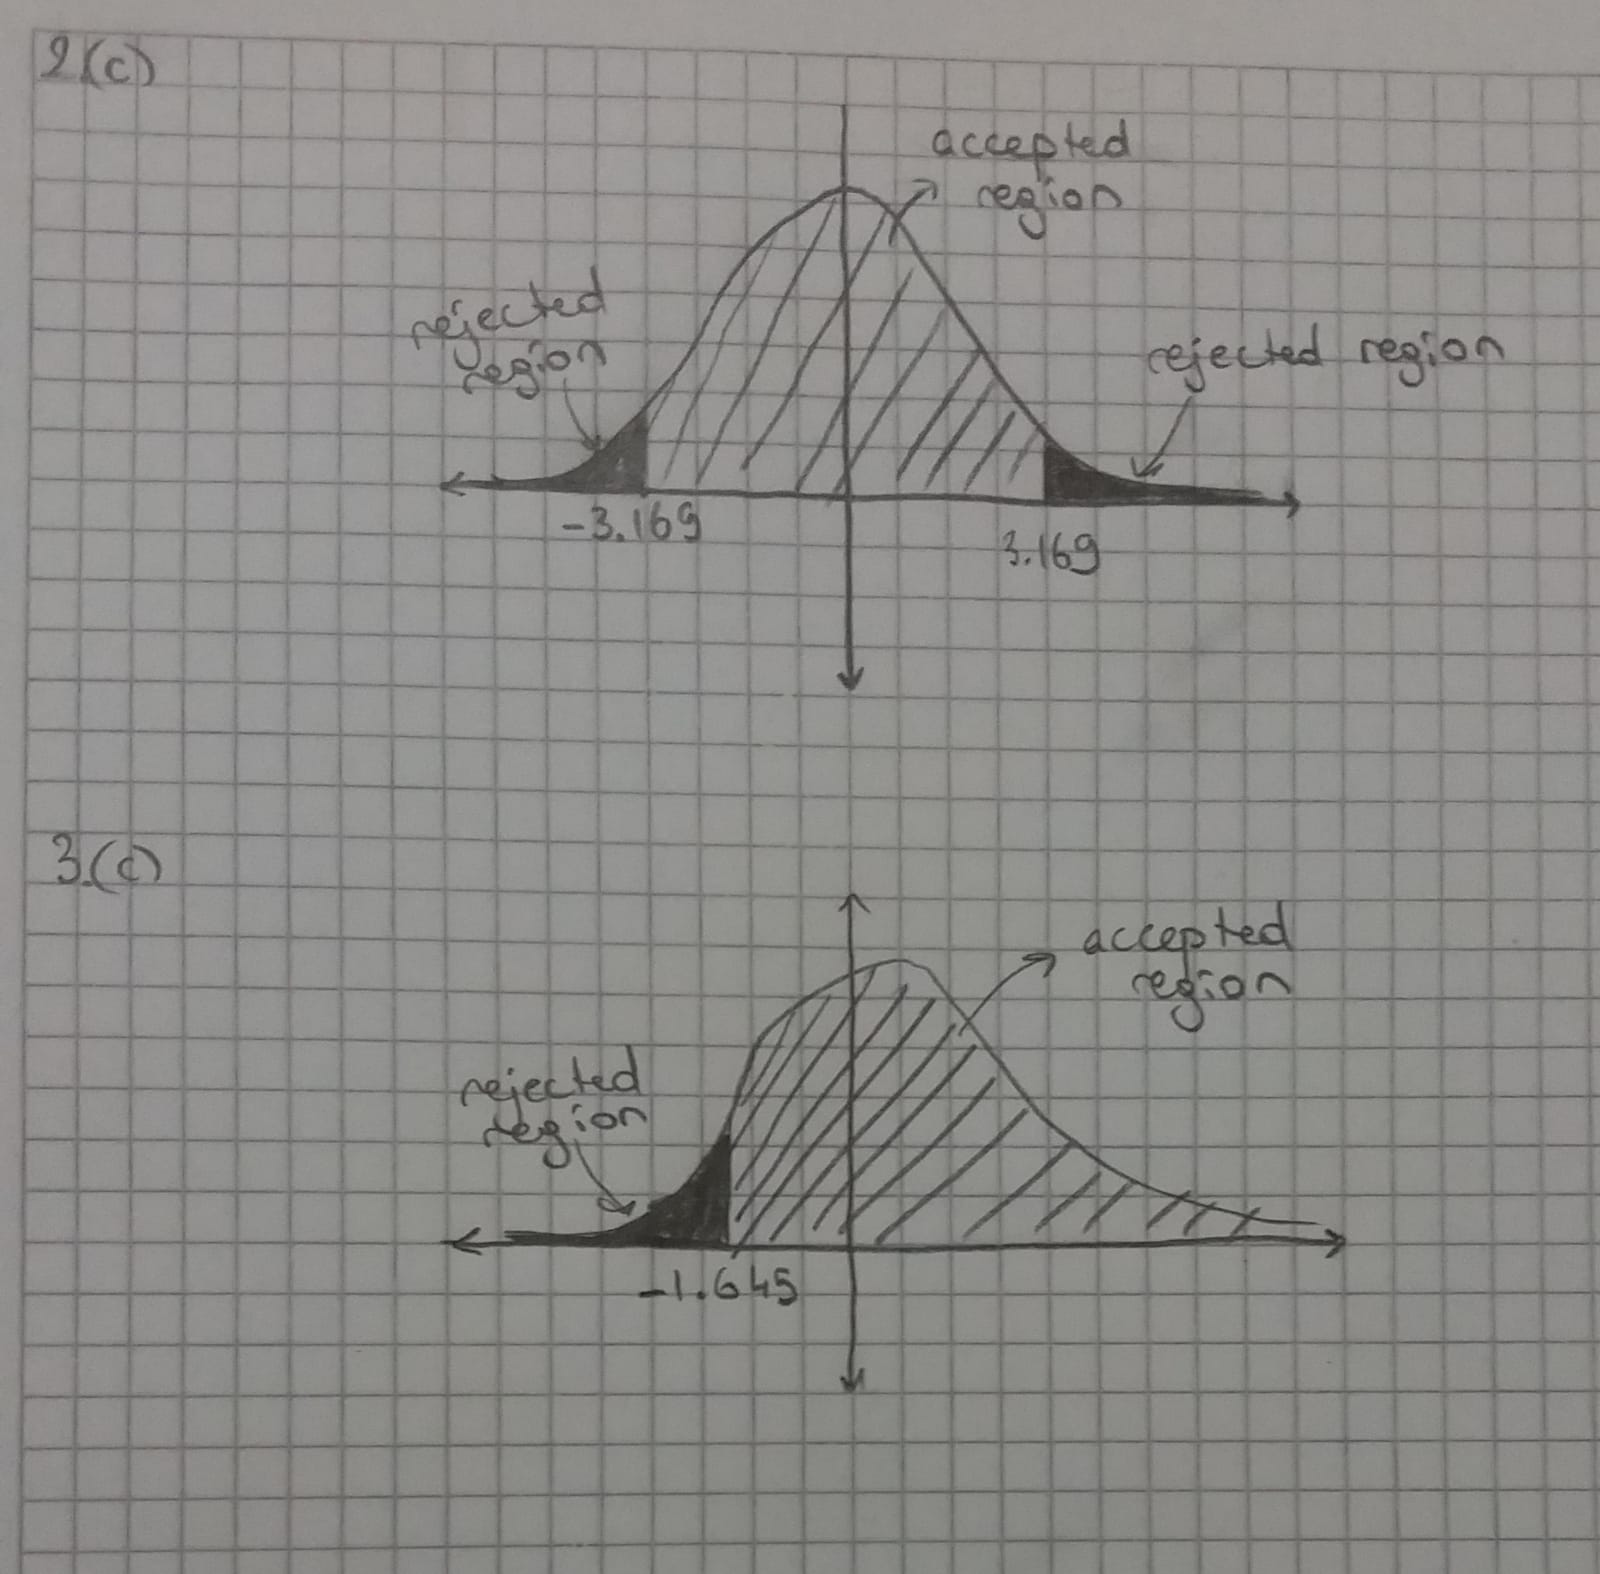 2(c)
accepted
region
rejected
region
rejected region
-3.169
3.169
3.(c)
accepted
region
rejected
region
-1.645